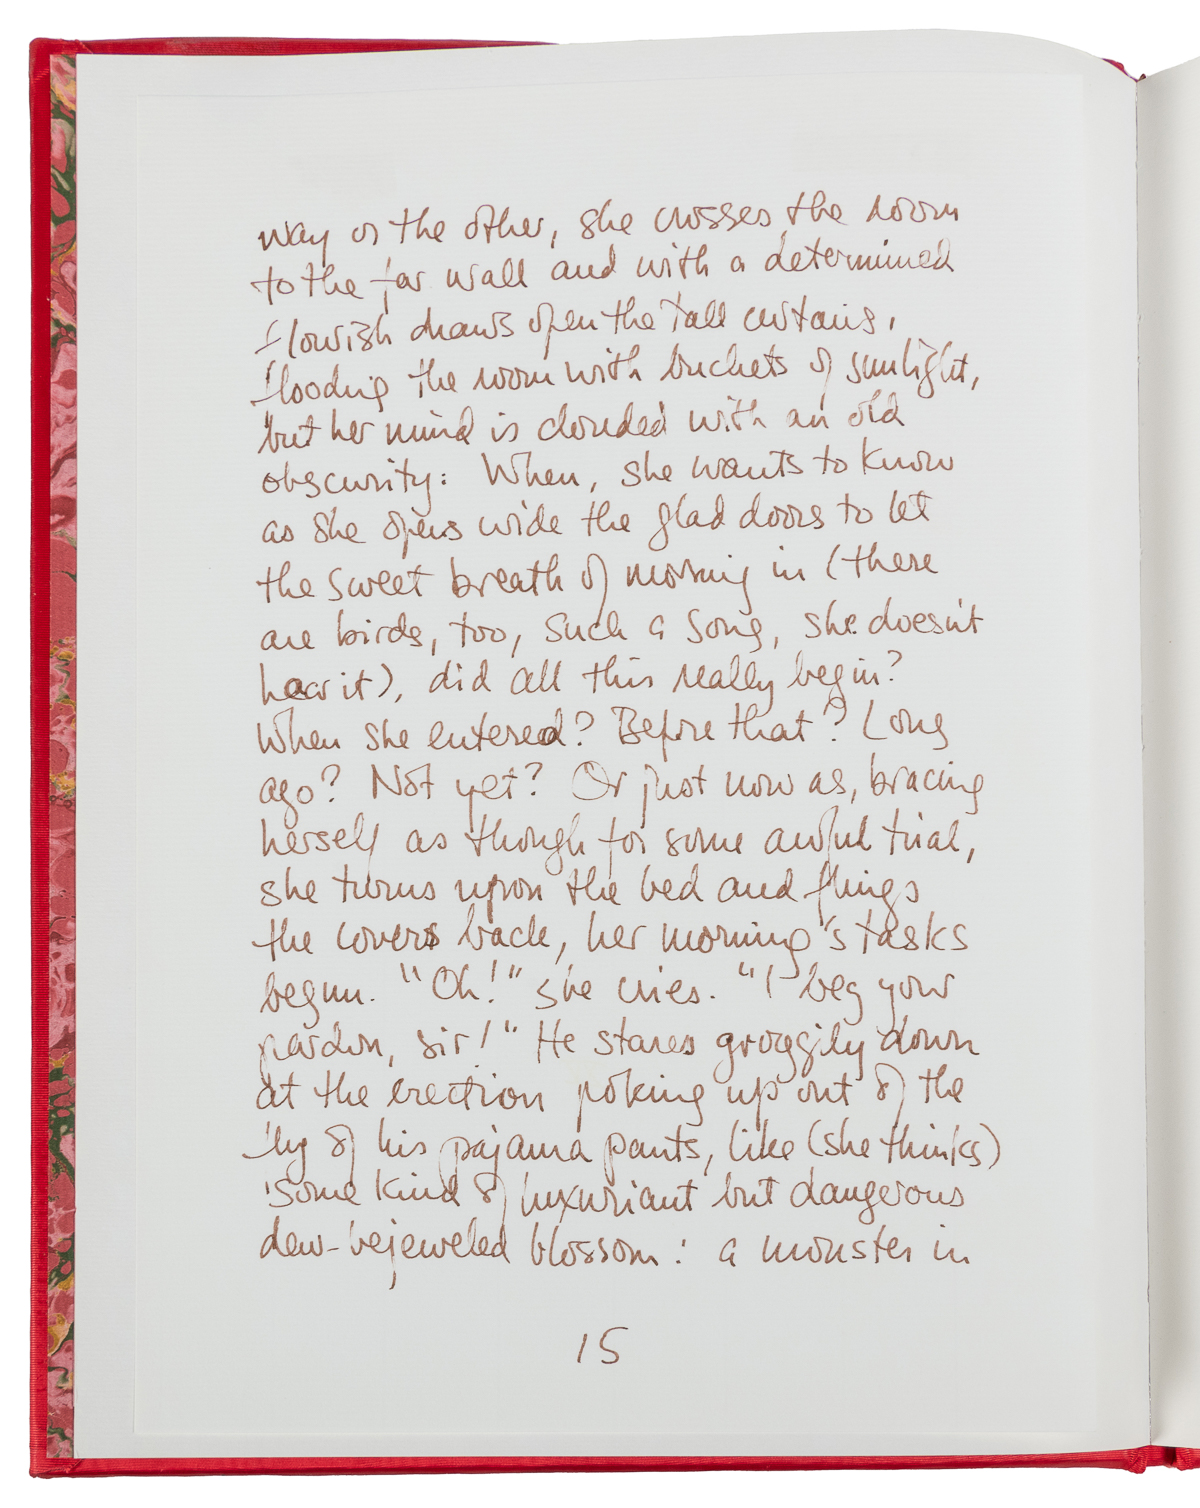 way or the other, she crosses the room
to the far wall and with a determined
flourish draws open the tall curtains,
flooding the room with buckets of sunlight,
but her mind is clouded with an old
obscurity: When, she wants to know
as she opens wide the glad doors to let
the sweet breath of morning in (there
are birds, too, such a song, she doesn't
hear it), did all this really begin?
When she entered? Before that? Long
ago? Not yet? Or just now as, bracing
herself as though for some awful trial,
she turns upon the bed and flings
the covers back, her morning's tasks
begun. "Oh!" she cries. "I beg your
pardon, sir!" He stares groggily down
at the erection poking up out of the
fly of his pajama pants, like (she thinks)
some kind of luxuriant but dangerous
dew-bejeweled blossom: a monster in
15